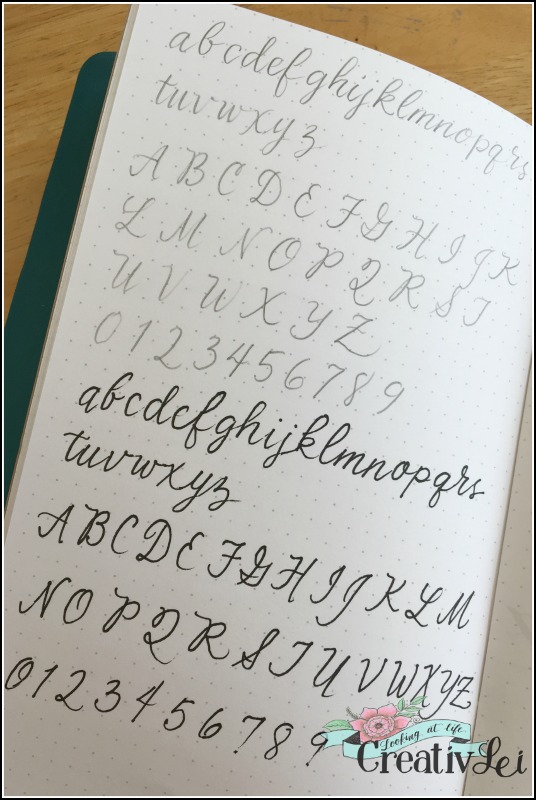 abcdefghijklmnopqrs
tuvwxyz
A B C D E F G H I J K
L M N O P Q R S T
U V W X Y Z
0 1 2 3 4 5 6 7 8 9
abcdefghijklmnopqrs
tuvwxyz
A B C D E F G H I J K L M
N O P Q R S T U V W X Y Z
0 1 2 3 4 5 6 7 8 9
Looking at life
CreativLei